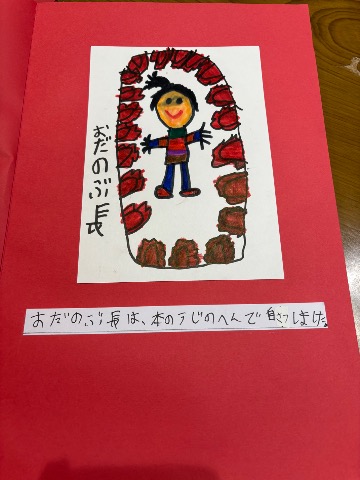 おだのぶ長
おだのぶ長は、本のうじのへんで自さつしました。